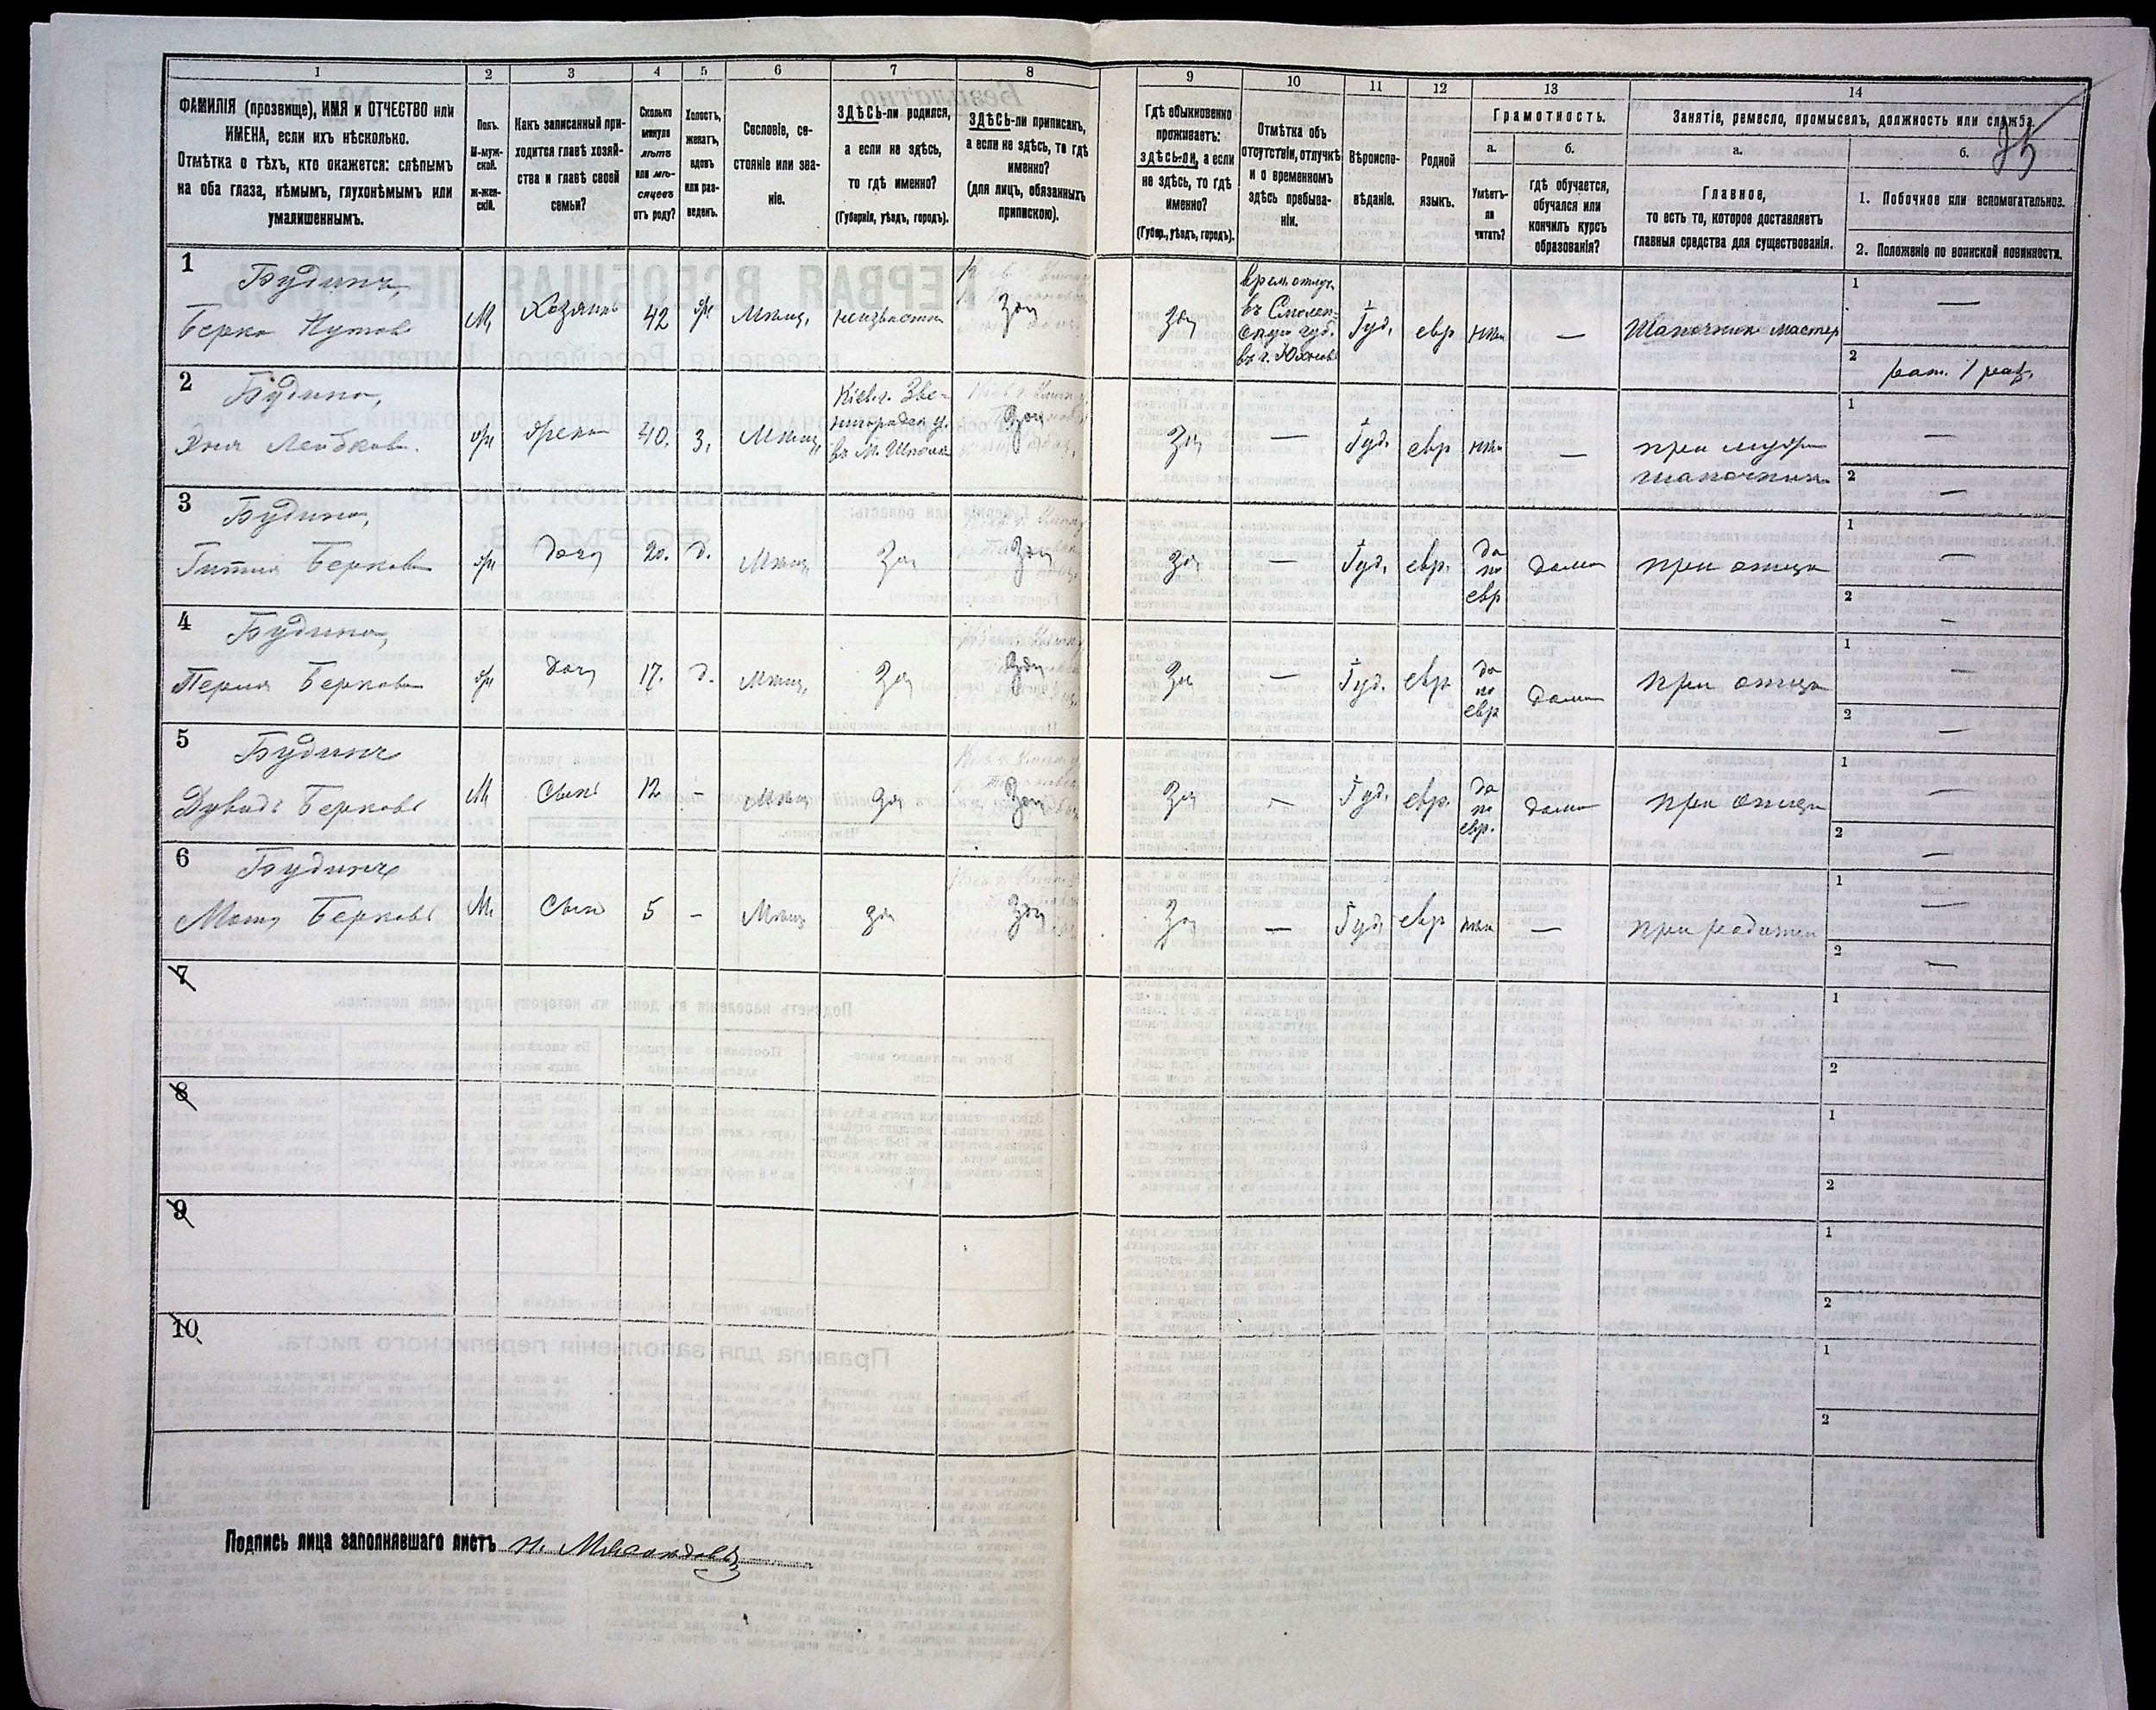 1 2 3 4 5 6 7 8 9 10 11 12 13 14
ФАМИЛІЯ (прозвище), ИМЯ и ОТЧЕСТВО или
ИМЕНА, если ихъ нѣсколько.
Отмѣтка о тѣхъ, кто окажется: слѣпымъ
на оба глаза, нѣмымъ, глухонѣмымъ или
умалишеннымъ.
Полъ.
М-муж-
ской.
Ж-жен-
скій.
Какъ записанный при-
ходится главѣ хозяй-
ства и главѣ своей
семьи?
Сколько
минуло
лѣтъ
или мѣ-
сяцевъ
отъ роду?
Холостъ,
женатъ,
вдовъ
или раз-
веденъ.
Сословіе, со-
стояніе или зва-
ніе.
ЗДѢСЬ-ли родился,
а если не здѣсь,
то гдѣ именно?
(Губернія, уѣздъ, городъ).
ЗДѢСЬ-ли приписанъ,
а если не здѣсь, то гдѣ
именно?
(для лицъ, обязанныхъ
припискою).
Гдѣ обыкновенно
проживаетъ:
здѣсь-ли, а если
не здѣсь, то гдѣ
именно?
(Губер., уѣздъ, городъ).
Отмѣтка объ
отсутствіи, отлучкѣ
и о временномъ
здѣсь пребыва-
ніи.
Вѣроиспо-
вѣданіе.
Родной
языкъ.
Грамотность.
а. б.
Умѣетъ-
ли
читать?
гдѣ обучается,
обучался или
кончилъ курсъ
образованія?
Занятіе, ремесло, промыселъ, должность или служба.
а. б.
25
Главное,
то есть то, которое доставляетъ
главныя средства для существованія.
1. Побочное или вспомогательное.
2. Положеніе по воинской повинности.
1
Будинъ,
Берко
М. Хозяинъ 42 Мѣщ. неизвѣстно Зды
Зды
въ Смолен-
скую губ.
въ г. Юхновъ
Іуд. евр. нѣт — Шапочникъ мастер
1 —
2 рат. 1 раз.
2
Будина,
Хая Лейбкова.
ж жена 40. З. Мѣщ.
Кіев. г. Зве-
нигородск. у.
въ М. Шпола
Зды
Зды — Іуд. евр нѣт —
при мужѣ
шапочник
1 —
2 —
3
Будина,
Гитля Беркова
ж дочь 20. д. Мѣщ. Зды Зды
Зды — Іуд. евр.
да
по
евр
дома при отцѣ
1 —
2 —
4
Будина,
Перля Беркова
ж дочь 17. д. Мѣщ. Зды Зды
Зды — Іуд. евр
да
по
евр
дома при отцѣ
1 —
2 —
5
Будинъ
Дувидъ Берковъ
М сынъ 12 - Мѣщ Зды Зды
Зды — Іуд. евр.
да
по
евр.
дома при отцѣ
1 —
2 —
6
Будинъ
Берковъ
М. Сынъ 5 - Мѣщ Зды Зды
Зды — Іуд. евр нѣт — при родител
1 —
2 —
7
1
2
8
1
2
9
1
2
10
1
2
Подпись лица заполнявшаго листъ